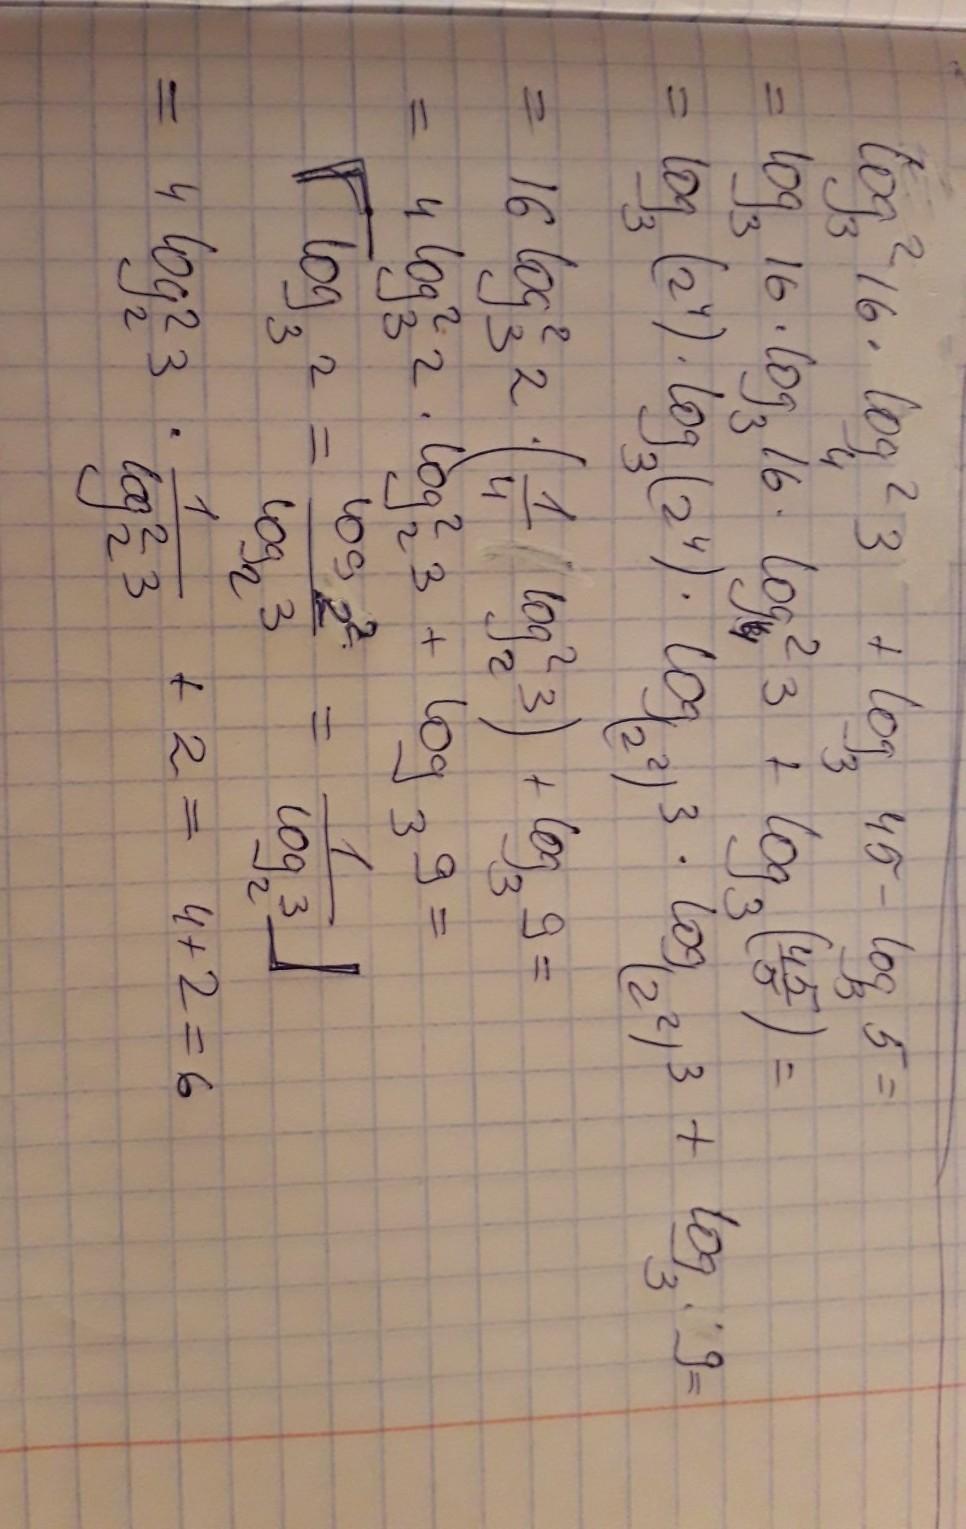 log₃² 16 · log₄² 3 + log₃ 45 - log₃ 5 =
= log₃ 16 · log₃ 16 · log₄² 3 + log₃ (45/5) =
= log₃ (2⁴) · log₃ (2⁴) · log₍₂²₎ 3 · log₍₂²₎ 3 + log₃ 9 =
= 16 log₃² 2 · (1/4 log₂² 3) + log₃ 9 =
= 4 log₃² 2 · log₂² 3 + log₃ 9 =
⌈ log₃ 2 = log₂ 2 / log₂ 3 = 1 / log₂ 3 ⌋
= 4 log₂² 3 · 1 / log₂² 3 + 2 = 4 + 2 = 6